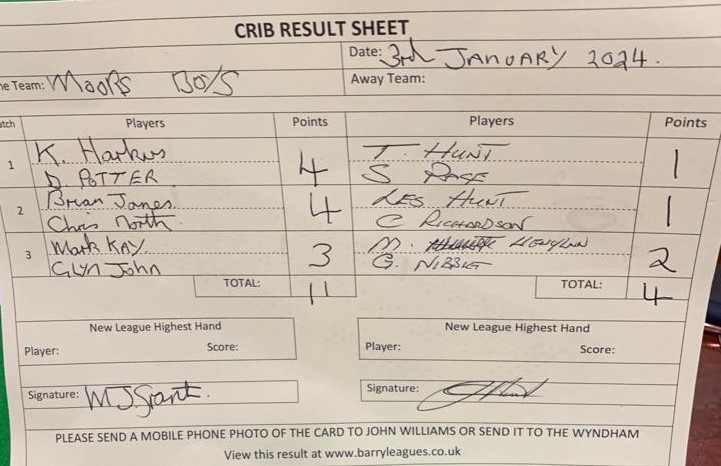 CRIB RESULT SHEET
Date: 3rd JANUARY 2024.
e Team: Moors Boys
Away Team:
tch Players Points Players Points
1 K. Harkus 4 T. HUNT 1
D. POTTER S PAGE
2 Brian Jones 4 LES HUNT 1
Chris North. C RICHARDSON
3 Mark KAY. 3 M. 2
Glyn John G. NIBBLET
TOTAL: 11 TOTAL: 4
New League Highest Hand New League Highest Hand
Player: Score: Player: Score:
Signature: MJ Grant. Signature:
PLEASE SEND A MOBILE PHONE PHOTO OF THE CARD TO JOHN WILLIAMS OR SEND IT TO THE WYNDHAM
View this result at www.barryleagues.co.uk